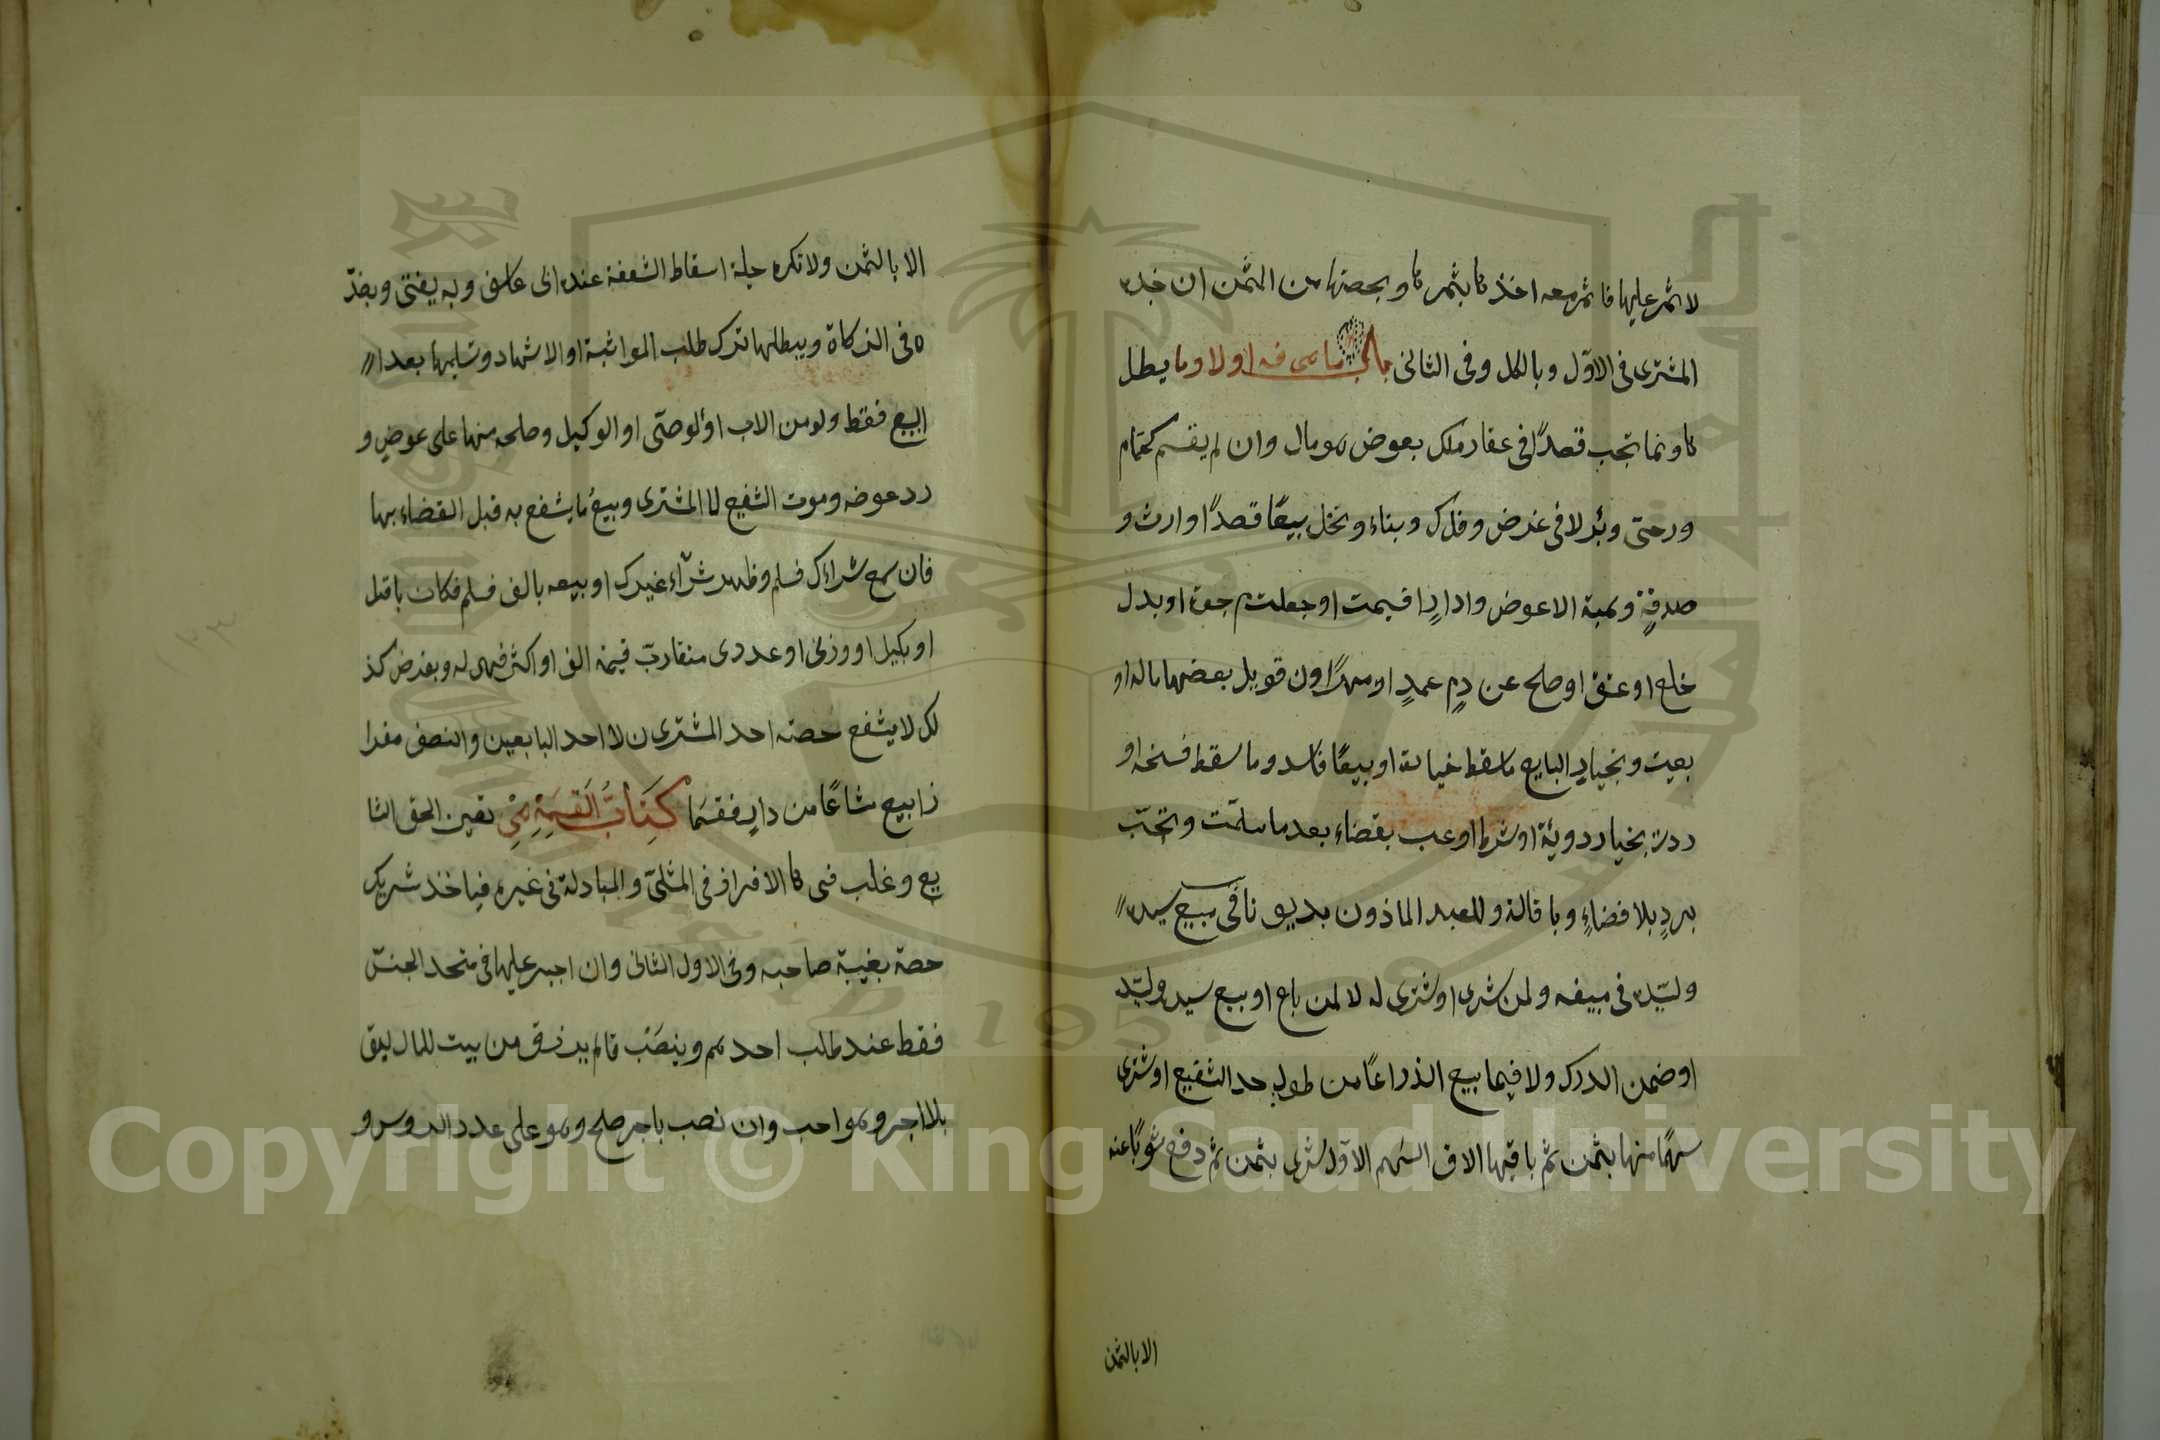 لا ثمر عليها فاثمر معه اخذها بثمرها وبحصتها من الثمن ان جده
المشترى فى الاول وبالكل وفى الثانى باب ما هى فيه اولا وما يبطل
ها وانما تجب قصدًا فى عقار ملك بعوض هو مال وان لم يقسم كحمام
ورحى وبئر لا فى عرض وفلك وبناء ونخل بيعًا قصدًا او ارث و
صدقةٍ وهبة الا عوض ودارٍ قسمت او جعلت اجرة او بدل
خلع او عتق او صلح عن دمٍ عمدٍ او مهرًا وان قوبل بعضها بمال او
بعيت وبخيار البايع ما سقط خياره او بيعًا فاسدا وما سقط فسخه او
ردت بخيار روية او شرط او عيب بقضاء بعد ما سلمت وتجب
بردٍ بلا قضاءٍ وباقالة وللعبد الماذون بديون نا فى بيع سيده
وسيده فى مبيعه ولمن شرى او شترى له لا لمن باع او بيع سيد وليّه
او ضمن الدرك ولا فيما بيع الا ذراعًا من طول حد الشفيع او شترى
سهمًا منها بثمن ثم باقيها الا فى السهم الاول او شرى بثمن ثم دفع ثوبًا عنه
الا بالثمن
الا بالثمن ولا تكره حيلة اسقاط الشفعة عند ابى يوسف وبه يفتى وبضدّ
ه فى الزكاة ويبطلها ترك طلب المواثبة او الاشهاد وتسليمها بعد ا
لبيع فقط ولو من الاب او الوصى او الوكيل وصلحه منها على عوض و
رد عوضه وموت الشفيع لا المشترى وبيع ما يشفع به قبل القضاء بها
فان سمع شراءك فسلم وظهر شراء غيرك او بيعه بالف فسلم فكان باقل
او بكيلى او وزنى او عددى متقارب قيمته الف او اكثر فهى له وبعرض كذ
لك لا يشفع حصة احد المشترين لا احد البايعين والنصف مفرا
زا بيع مشاعًا من دارٍ فقسما كتاب القسمة هى تعيين الحق الشا
يع وغلب فى ها الافراز فى المثلى والمبادلة فى غيره فياخذ شريك
حصة بغيبة صاحبه وفى الاول الثانى وان اجبر عليها فى متحد الجنس
فقط عند طلب احدهم وينصب قاسم يرزق من بيت المال ليق
بلا اجر وهو احب وان نصب باجر صلح وهو على عدد الروس و
Copyright © King Saud University
King Saud University
1957